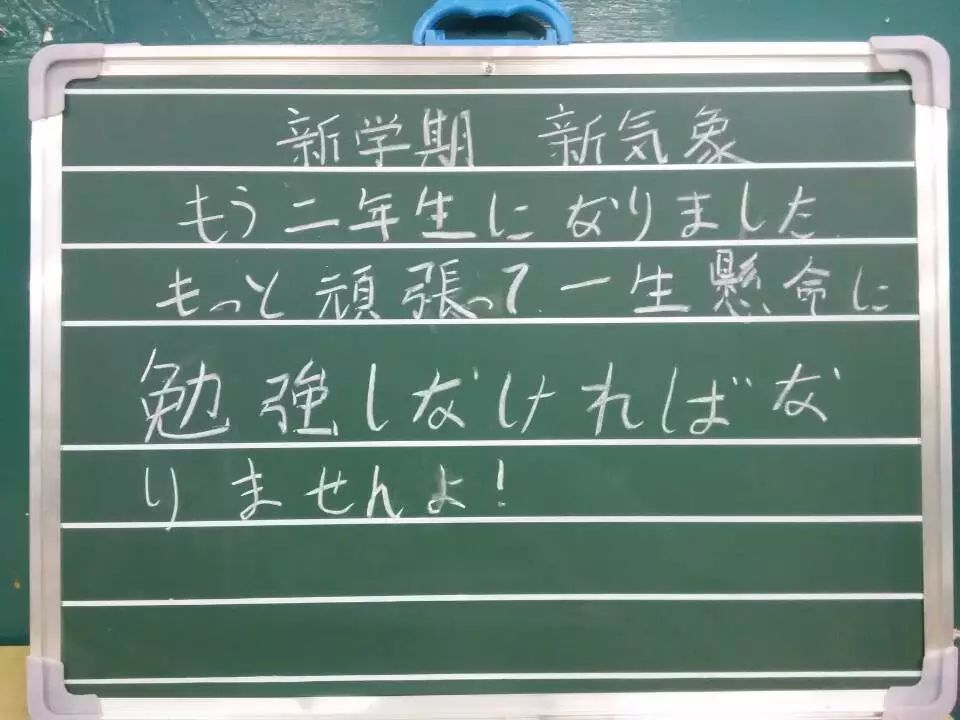 新学期 新気象
もう二年生になりました
もっと頑張って一生懸命に
勉強しなければな
りませんよ!